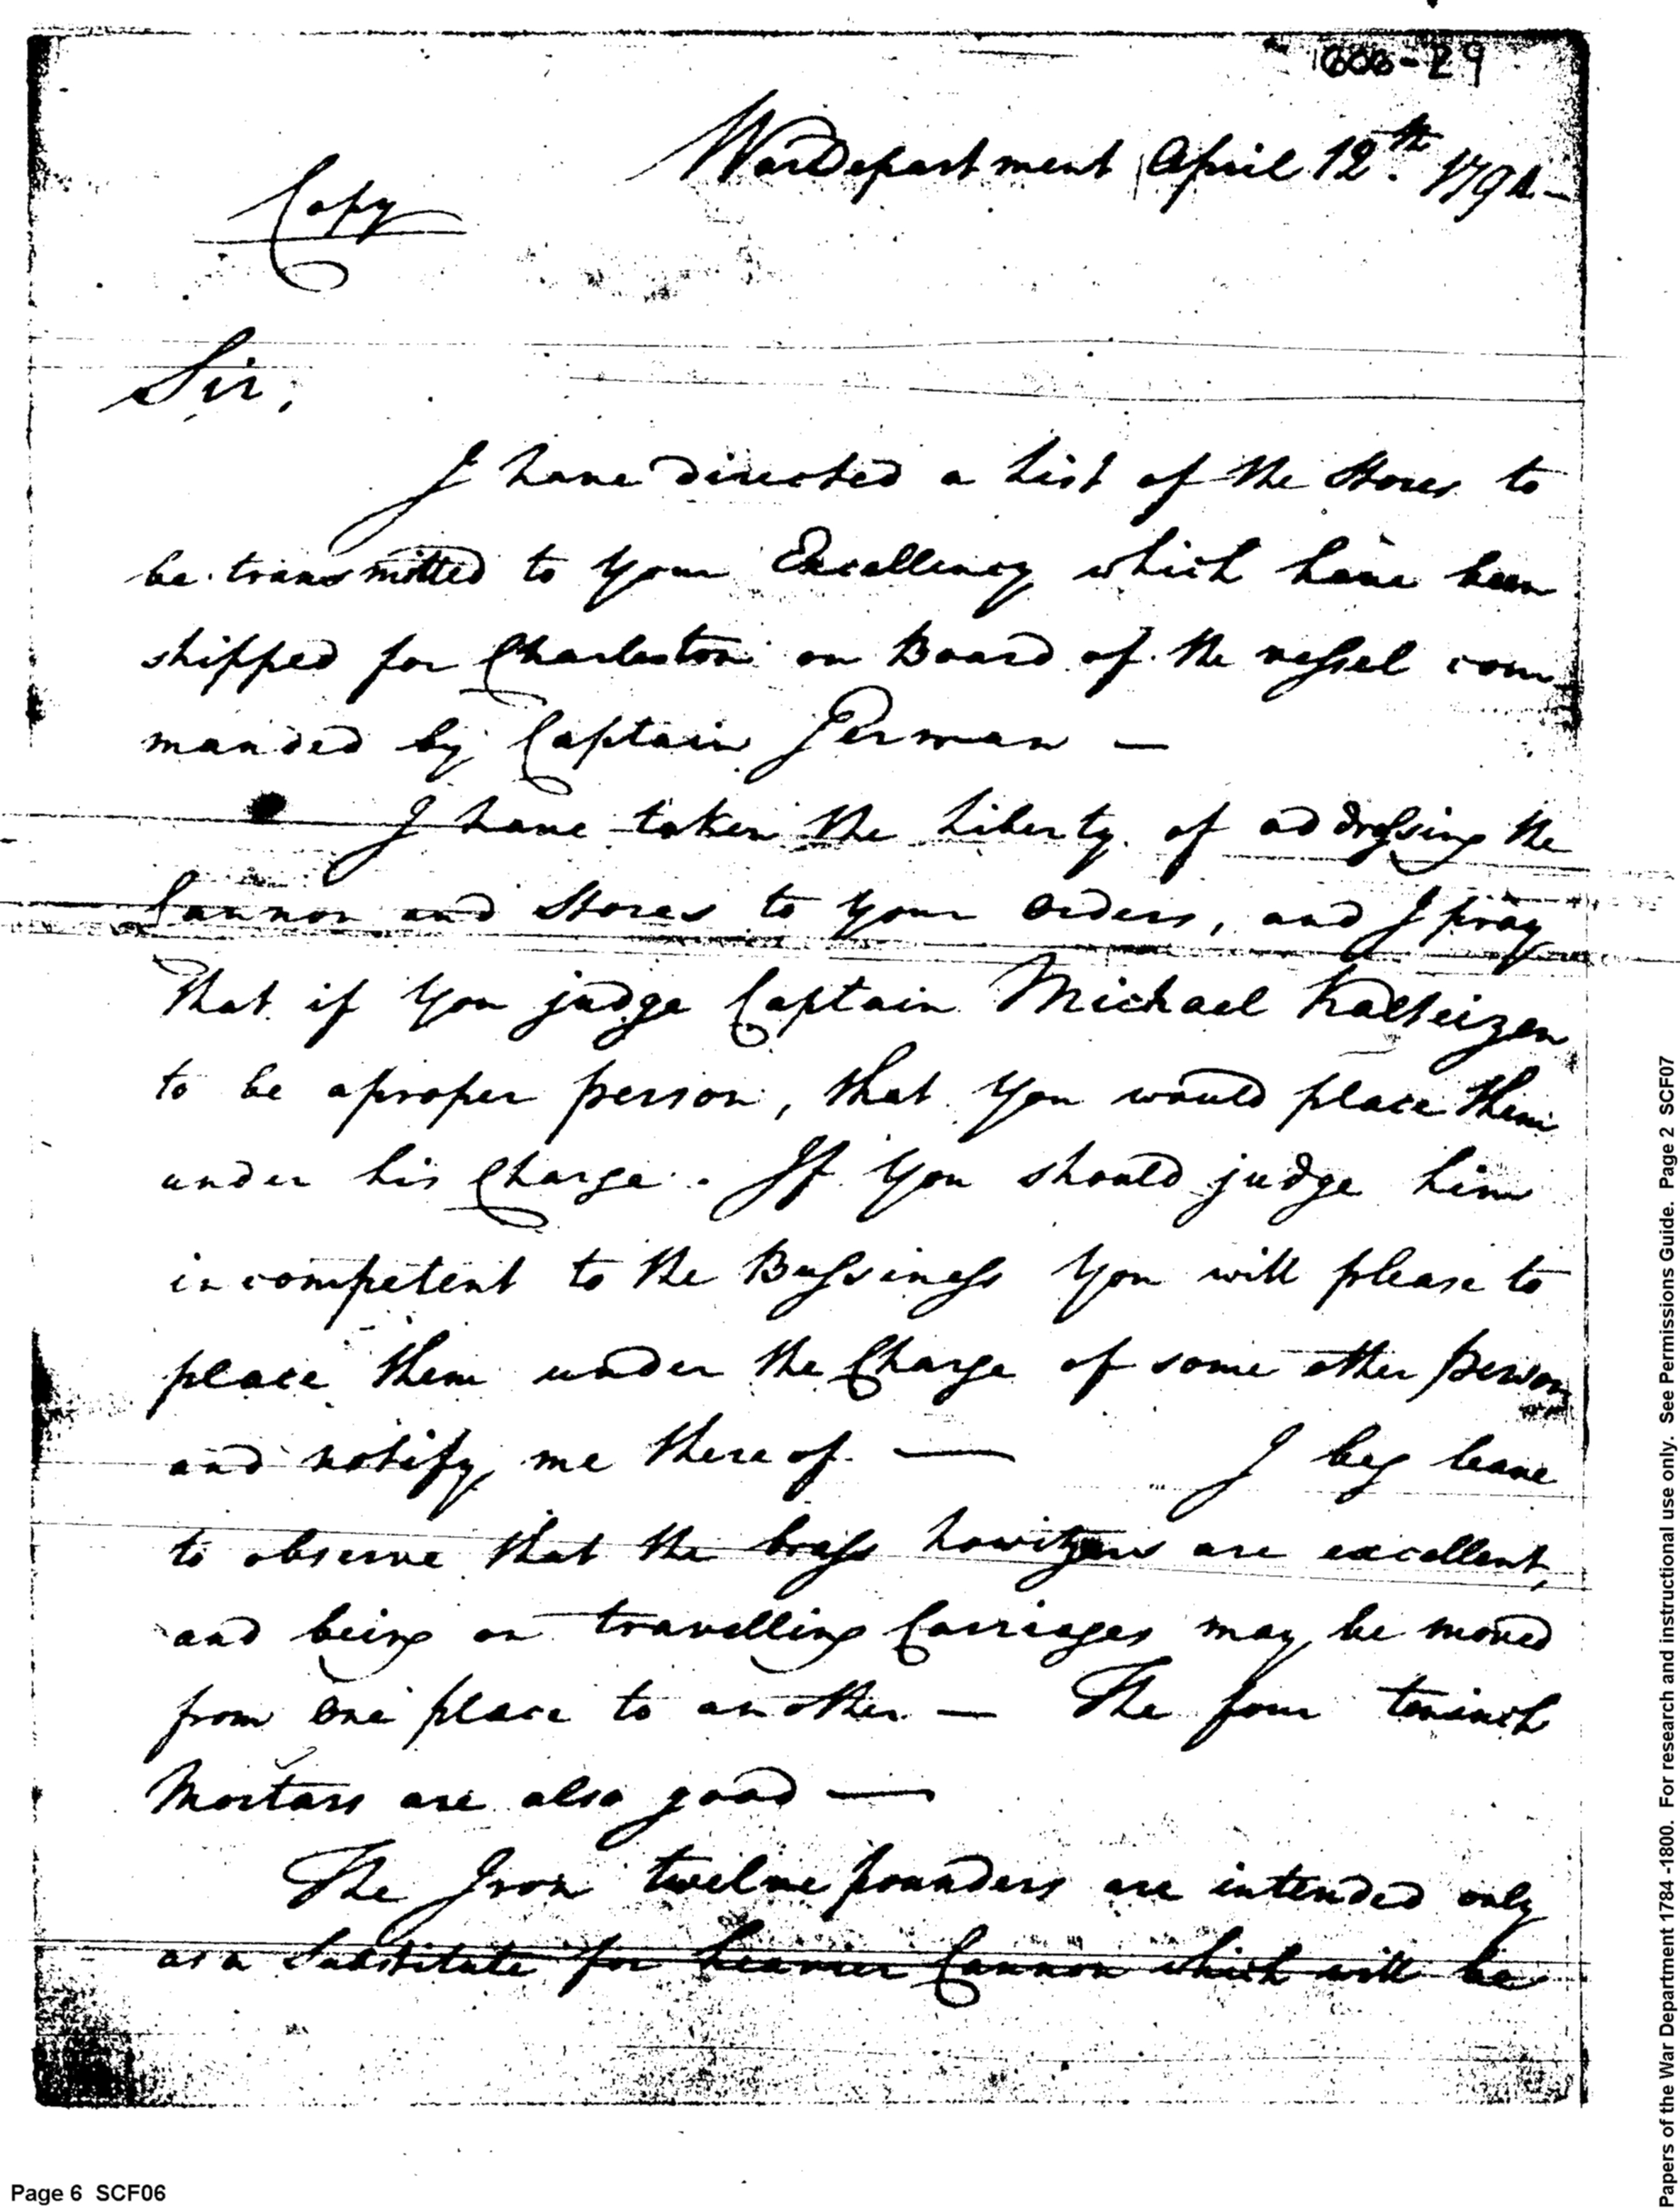 1606-29
War Department April 12th. 1794-
Copy
Sir;
I have directed a List of the Stores to
be transmitted to your Excellency which have been
shipped for Charleston on Board of the vessel com
manded by Captain German —
I have taken the Liberty of addressing the
Cannon and Stores to your orders, and I pray
that if you judge Captain Michael Kalteizen
to be aproper person, that you would place them
under his Charge. If you should judge him
incompetent to the Bussiness you will please to
place them under the Charge of some other person
and notify me thereof. — I beg leave
to observe that the brass howitzers are excellent,
and being on travelling Carriages may be moved
from one place to another — The four teninch
Mortars are also good —
The Iron twelve pounders are intended only
as a Substitute for heavier Cannon which will be
Page 6 SCF06
Papers of the War Department 1784-1800. For research and instructional use only. See Permissions Guide. Page 2 SCF07